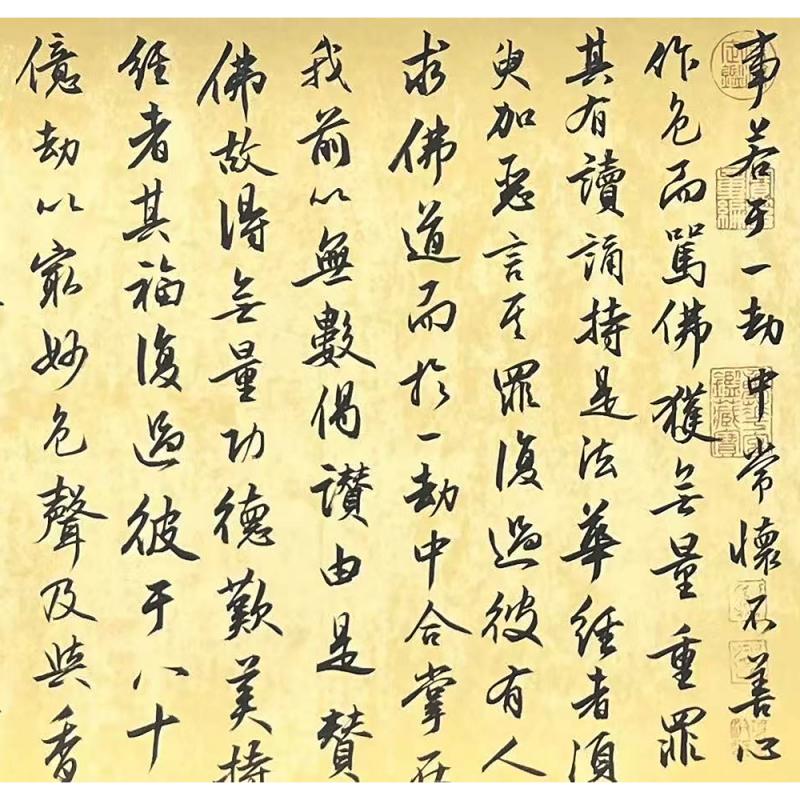 事若于一劫中常懷不善心
作色而罵佛獲無量重罪
其有讀誦持是法華經者須
臾加惡言其罪復過彼有人
求佛道而於一劫中合掌在
我前以無數偈讚由是贊
佛故得無量功德歎美持
經者其福復過彼于八十
億劫以最妙色聲及與香